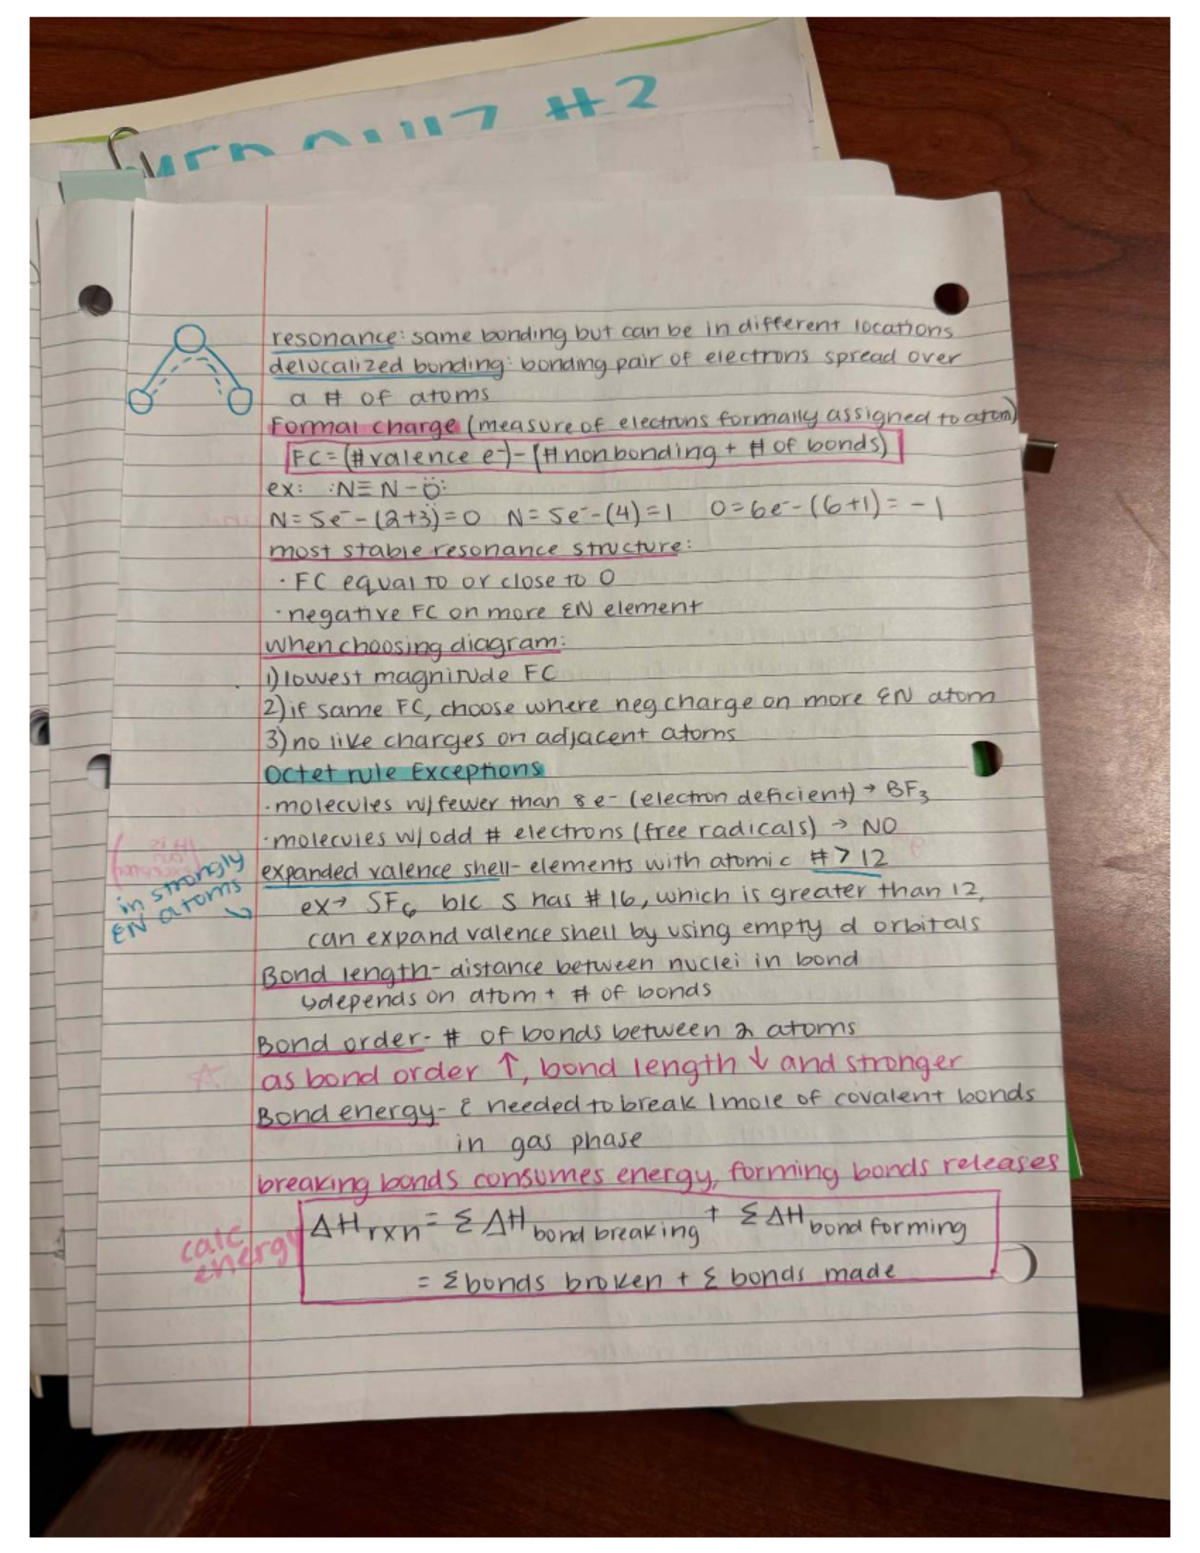 #2
resonance: same bonding but can be in different locations
delocalized bonding: bonding pair of electrons spread over
a # of atoms
Formal charge (measure of electrons formally assigned to atom)
FC = (# valence e⁻) - (# nonbonding + # of bonds)
ex: :N≡N-Ö:
N = 5e⁻ - (2+3) = 0 N = 5e⁻ - (4) = 1 O = 6e⁻ - (6+1) = -1
most stable resonance structure:
· FC equal to or close to 0
· negative FC on more EN element
When choosing diagram:
1) lowest magnitude FC
2) if same FC, choose where neg charge on more EN atom
3) no like charges on adjacent atoms
Octet rule Exceptions
· molecules w/ fewer than 8 e- (electron deficient) → BF₃
· molecules w/ odd # electrons (free radicals) → NO
expanded valence shell- elements with atomic # > 12
in strongly
EN atoms
ex→ SF₆ b/c S has # 16, which is greater than 12,
can expand valence shell by using empty d orbitals
Bond length- distance between nuclei in bond
↳depends on atom + # of bonds
Bond order- # of bonds between 2 atoms
as bond order ↑, bond length ↓ and stronger
Bond energy- E needed to break 1 mole of covalent bonds
in gas phase
breaking bonds consumes energy, forming bonds releases
calc
energy
ΔHrxn = Σ ΔH bond breaking + Σ ΔH bond forming
= Σ bonds broken + Σ bonds made